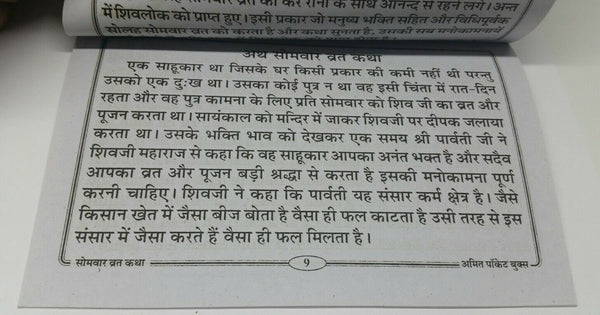 सोमवार व्रत को कर रानी के साथ आनन्द से रहने लगे। अन्त
में शिवलोक को प्राप्त हुए। इसी प्रकार जो मनुष्य भक्ति सहित और विधिपूर्वक
सोलह सोमवार व्रत को करता है और कथा सुनता है, उसकी सब मनोकामनायें
अथ सोमवार व्रत कथा
एक साहूकार था जिसके घर किसी प्रकार की कमी नहीं थी परन्तु
उसको एक दुःख था। उसका कोई पुत्र न था वह इसी चिंता में रात-दिन
रहता और वह पुत्र कामना के लिए प्रति सोमवार को शिव जी का व्रत और
पूजन करता था। सायंकाल को मन्दिर में जाकर शिवजी पर दीपक जलाया
करता था। उसके भक्ति भाव को देखकर एक समय श्री पार्वती जी ने
शिवजी महाराज से कहा कि वह साहूकार आपका अनंत भक्त है और सदैव
आपका व्रत और पूजन बड़ी श्रद्धा से करता है इसकी मनोकामना पूर्ण
करनी चाहिए। शिवजी ने कहा कि पार्वती यह संसार कर्म क्षेत्र है। जैसे
किसान खेत में जैसा बीज बोता है वैसा ही फल काटता है उसी तरह से इस
संसार में जैसा करते हैं वैसा ही फल मिलता है।
सोमवार व्रत कथा 9 अमित पॉकेट बुक्स